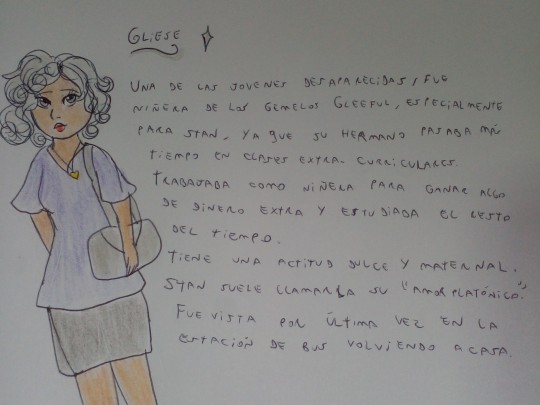 GLIESE
UNA DE LAS JOVENES DESAPARECIDAS, FUE
NIÑERA DE LOS GEMELOS GLEEFUL, ESPECIALMENTE
PARA STAN, YA QUE SU HERMANO PASABA MÁS
TIEMPO EN CLASES EXTRA-CURRICULARES.
TRABAJABA COMO NIÑERA PARA GANAR ALGO
DE DINERO EXTRA Y ESTUDIABA EL RESTO
DEL TIEMPO.
TIENE UNA ACTITUD DULCE Y MATERNAL.
STAN SUELE LLAMARLA SU "AMOR PLATÓNICO".
FUE VISTA POR ÚLTIMA VEZ EN LA
ESTACIÓN DE BUS VOLVIENDO A CASA.